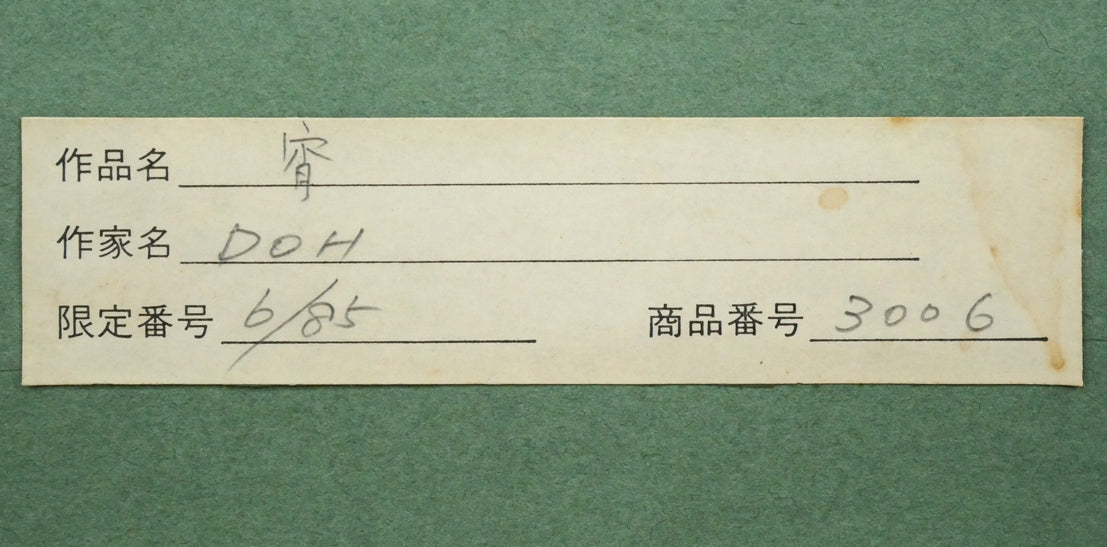 作品名 宵
作家名 DOH
限定番号 6/85 商品番号 3006